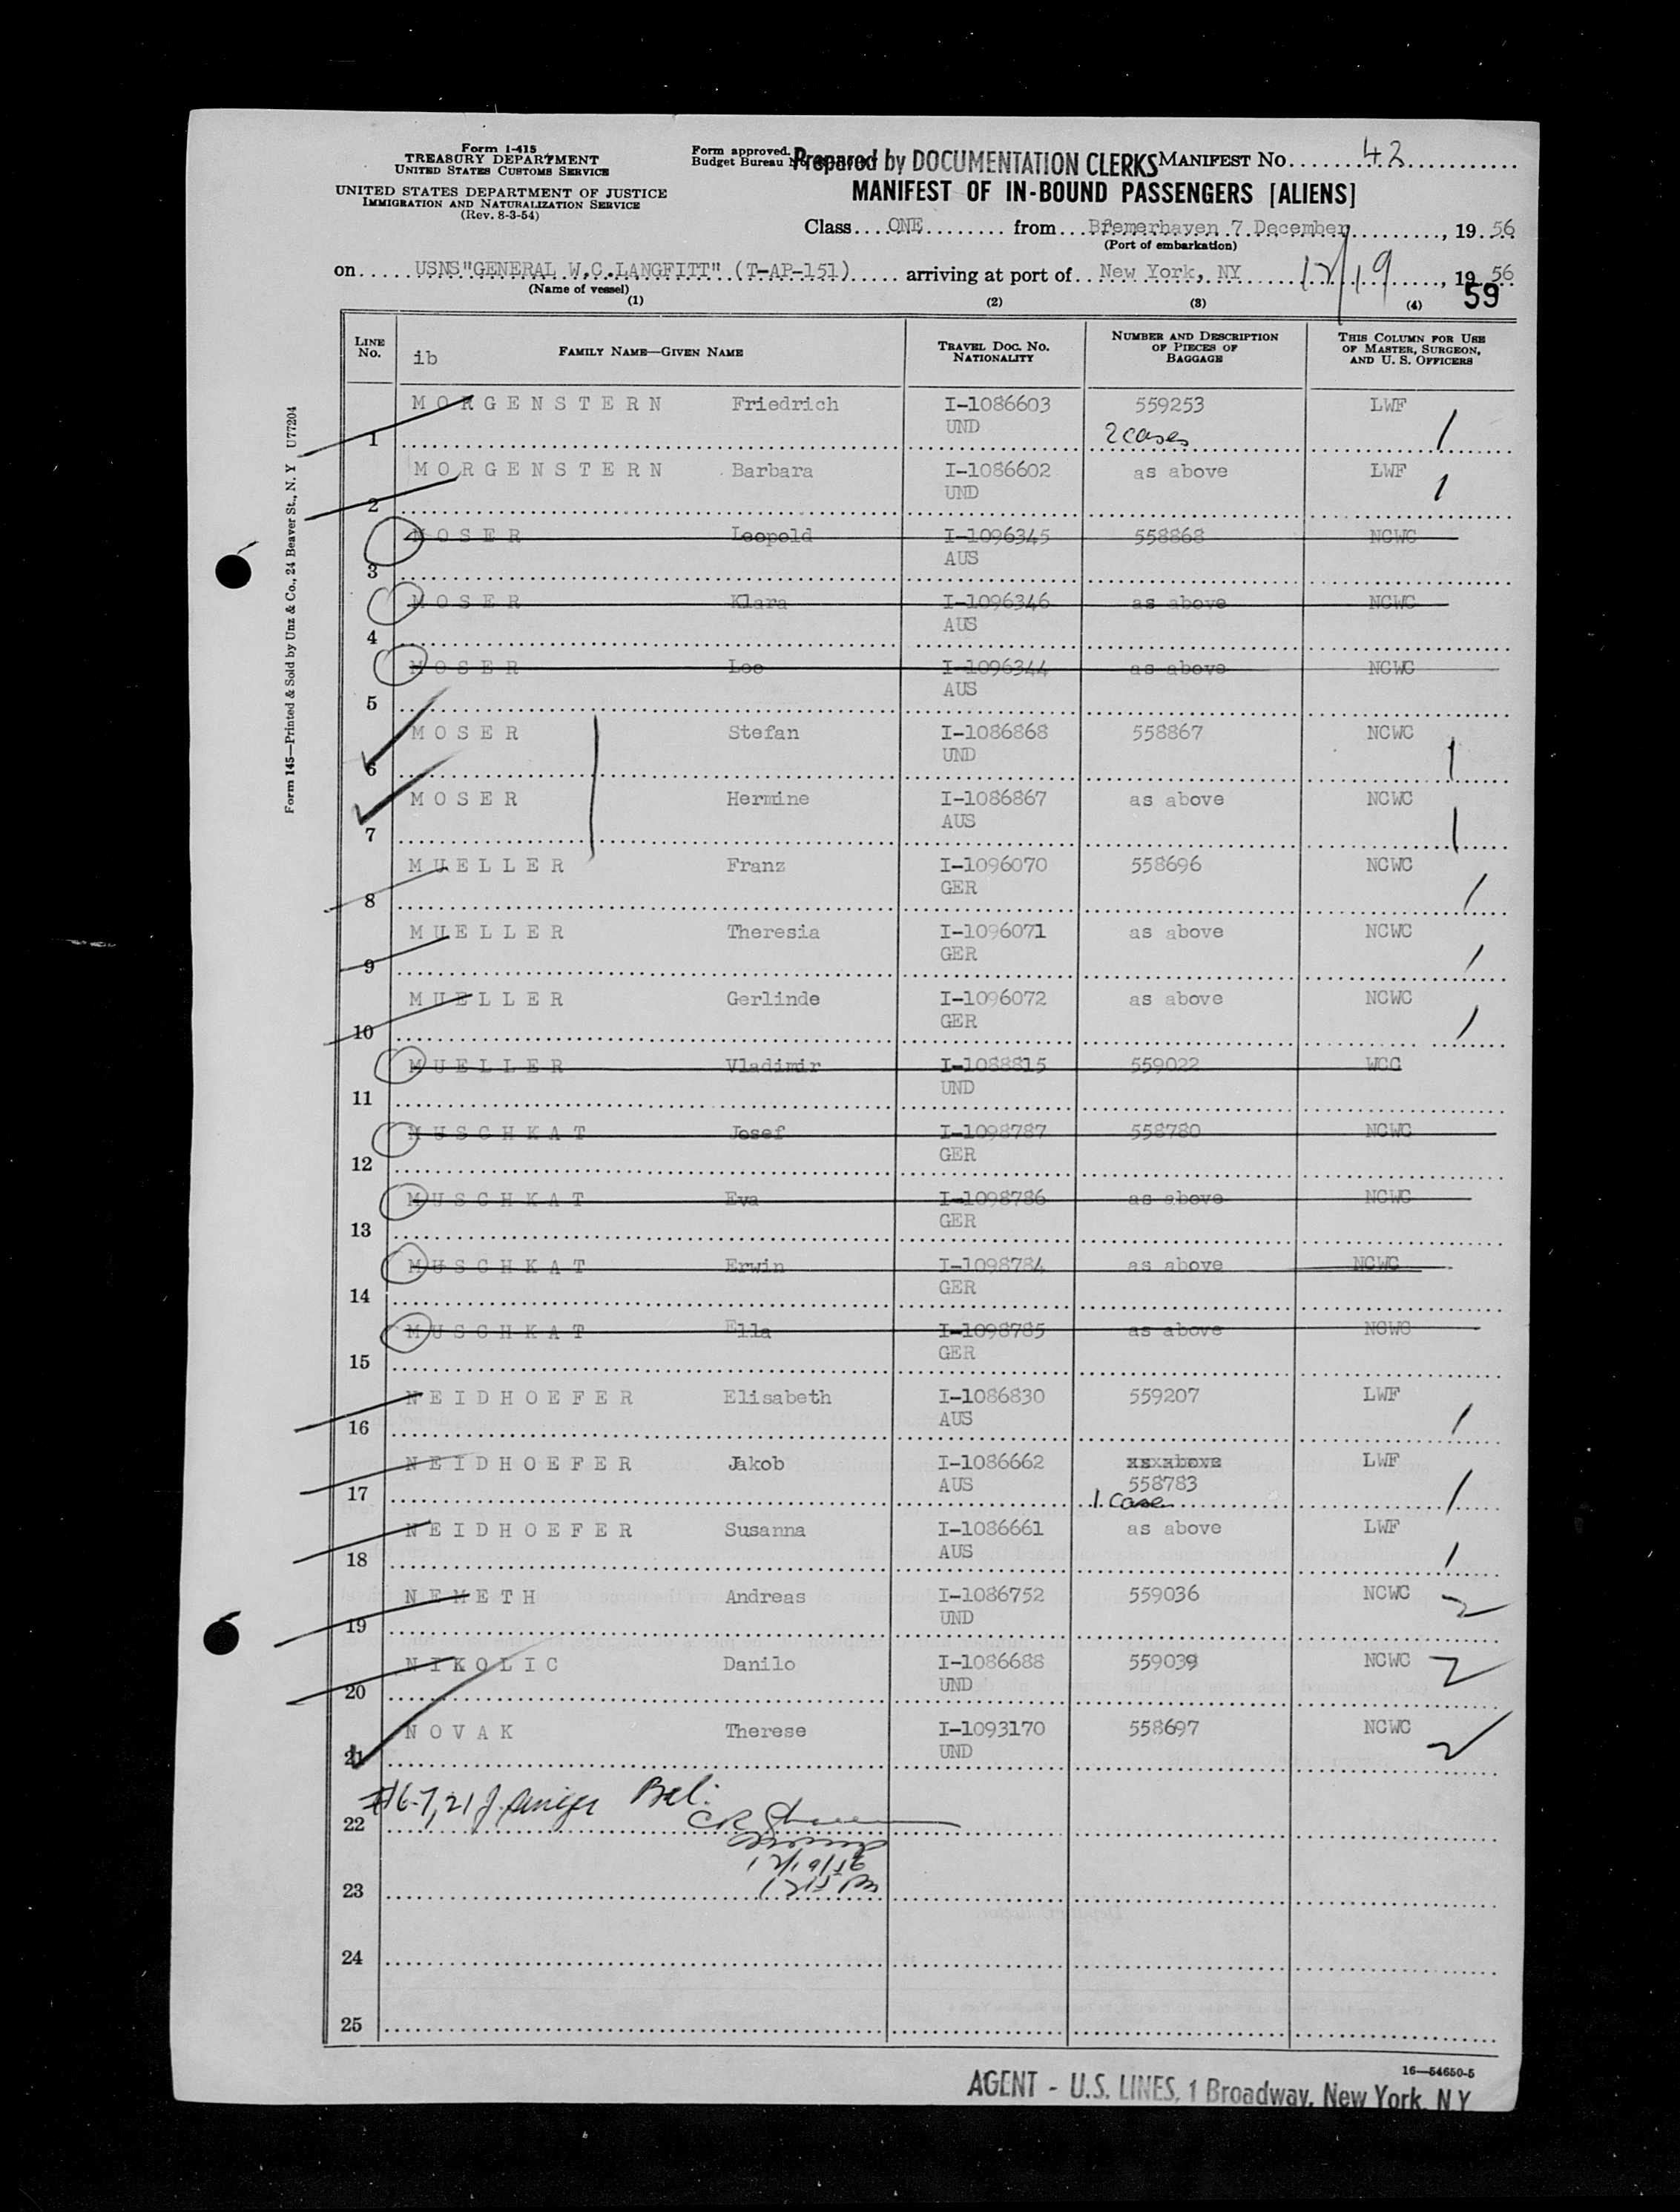 Form I-415
TREASURY DEPARTMENT
UNITED STATES CUSTOMS SERVICE
UNITED STATES DEPARTMENT OF JUSTICE
IMMIGRATION AND NATURALIZATION SERVICE
(Rev. 8-3-54)
Form approved.
Budget Bureau
Prepared by DOCUMENTATION CLERKS
MANIFEST NO. 42
MANIFEST OF IN-BOUND PASSENGERS [ALIENS]
Class ONE from Bremerhaven 7 December, 19 56
(Port of embarkation)
on USNS"GENERAL W.C.LANGFITT" (T-AP-151) arriving at port of New York, NY 12/19, 19 56
(Name of vessel)
59
(1) (2) (3) (4)
LINE NO. ib FAMILY NAME—GIVEN NAME TRAVEL DOC. NO. NATIONALITY NUMBER AND DESCRIPTION OF PIECES OF BAGGAGE THIS COLUMN FOR USE OF MASTER, SURGEON, AND U. S. OFFICERS
MORGENSTERN Friedrich I-1086603 559253 LWF
1 UND 2 cases 1
MORGENSTERN Barbara I-1086602 as above LWF
2 UND 1
MOSER Leopold I-1096345 558868 NCWC
3 AUS
MOSER Klara I-1096346 as above NCWC
4 AUS
MOSER Leo I-1096344 as above NCWC
5 AUS
MOSER Stefan I-1086868 558867 NCWC
6 UND 1
MOSER Hermine I-1086867 as above NCWC
7 AUS 1
MUELLER Franz I-1096070 558696 NCWC
8 GER 1
MUELLER Theresia I-1096071 as above NCWC
9 GER 1
MUELLER Gerlinde I-1096072 as above NCWC
10 GER 1
MUELLER Vladimir I-1088815 559022 WCC
11 UND
MUSCHKAT Josef I-1098787 558780 NCWC
12 GER
MUSCHKAT Eva I-1098786 as above NCWC
13 GER
MUSCHKAT Erwin I-1098784 as above NCWC
14 GER
MUSCHKAT Ella I-1098785 as above NCWC
15 GER
NEIDHOEFER Elisabeth I-1086830 559207 LWF
16 AUS 1
NEIDHOEFER Jakob I-1086662 as above LWF
AUS 558783
17 1 case 1
NEIDHOEFER Susanna I-1086661 as above LWF
18 AUS 1
NEMETH Andreas I-1086752 559036 NCWC 2
19 UND
NIKOLIC Danilo I-1086688 559039 NCWC 2
20 UND
NOVAK Therese I-1093170 558697 NCWC
21 UND 2
#6-7, 21
22
12/19/56
23
24
25
16—54650-5
AGENT - U.S. LINES, 1 Broadway, New York, N.Y
Form 145—Printed & Sold by Unz & Co., 24 Beaver St., N. Y U77204